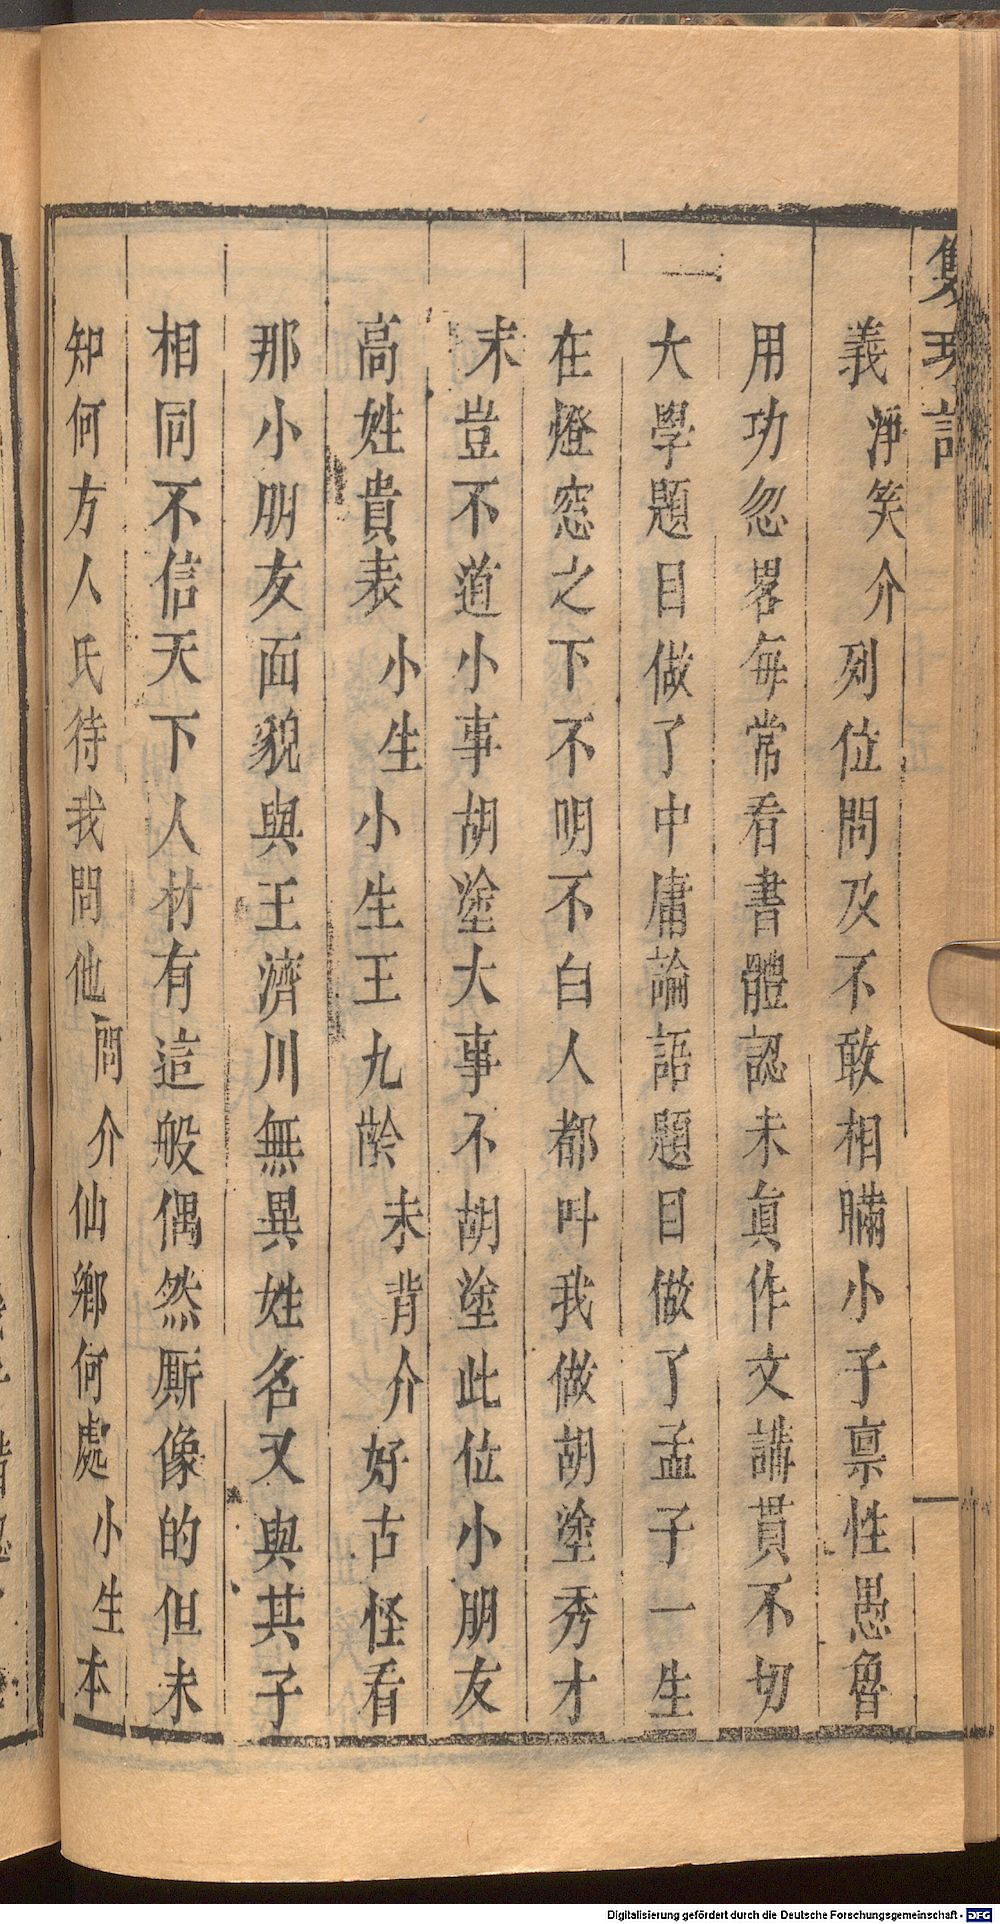 義淨笑介列位問及不敢相瞞小子禀性愚魯
用功忽畧每常看書體認未眞作文講貫不切
大學題目做了中庸論語題目做了孟子一生
在燈窓之下不明不白人都呌我做胡塗秀才
末豈不道小事胡塗大事不胡塗此位小朋友
高姓貴表小生小生王九齡末背介好古怪看
那小朋友面貌與王濟川無異姓名又與其子
相同不信天下人材有這般偶然厮像的但未
知何方人氏待我問他問介仙鄉何處小生本
Digitalisierung gefördert durch die Deutsche Forschungsgemeinschaft - DFG